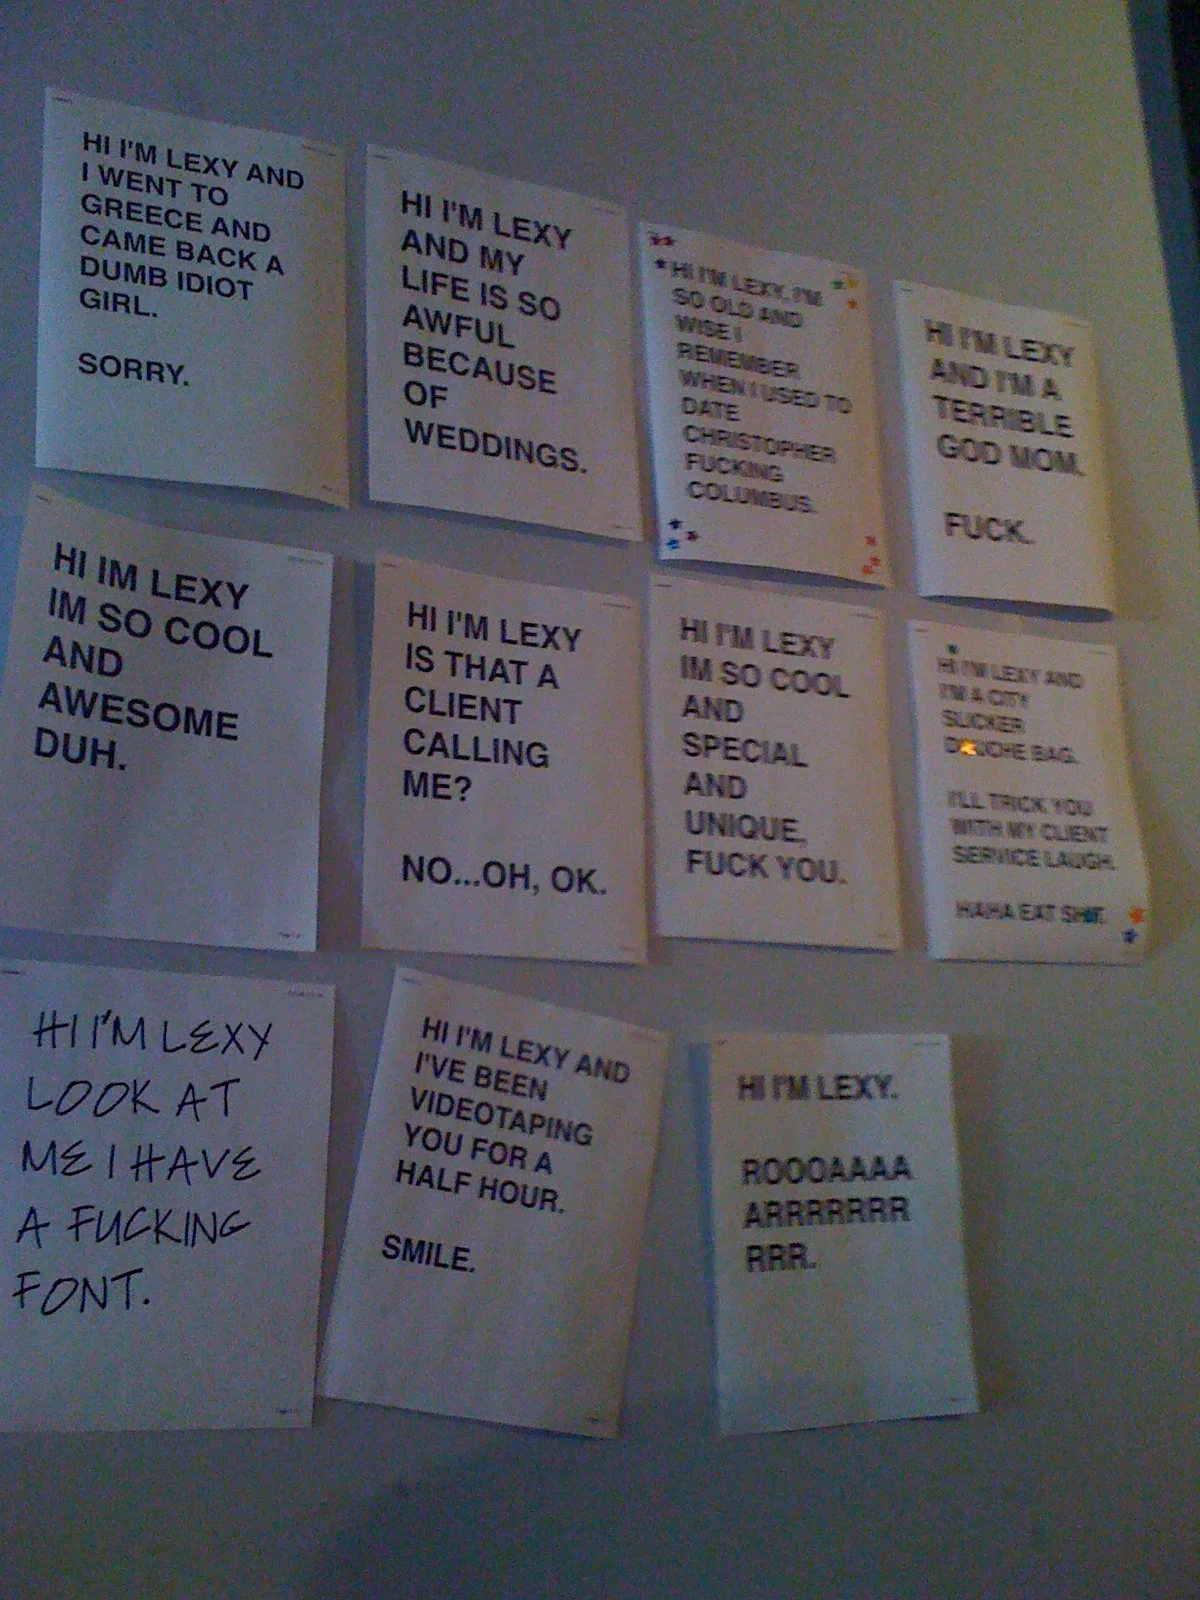 HI I'M LEXY AND
I WENT TO
GREECE AND
CAME BACK A
DUMB IDIOT
GIRL.
SORRY.
HI I'M LEXY
AND MY
LIFE IS SO
AWFUL
BECAUSE
OF
WEDDINGS.
HI I'M LEXY, I'M
SO OLD AND
WISE I
REMEMBER
WHEN I USED TO
DATE
CHRISTOPHER
FUCKING
COLUMBUS.
HI I'M LEXY
AND I'M A
TERRIBLE
GOD MOM.
FUCK.
HI IM LEXY
IM SO COOL
AND
AWESOME
DUH.
HI I'M LEXY
IS THAT A
CLIENT
CALLING
ME?
NO...OH, OK.
HI I'M LEXY
IM SO COOL
AND
SPECIAL
AND
UNIQUE,
FUCK YOU.
HI I'M LEXY AND
I'M A CITY
SLICKER
DOUCHE BAG.
I'LL TRICK YOU
WITH MY CLIENT
SERVICE LAUGH.
HAHA EAT SHIT.
HI I'M LEXY
LOOK AT
ME I HAVE
A FUCKING
FONT.
HI I'M LEXY AND
I'VE BEEN
VIDEOTAPING
YOU FOR A
HALF HOUR.
SMILE.
HI I'M LEXY.
ROOOAAAA
ARRRRRRR
RRR.